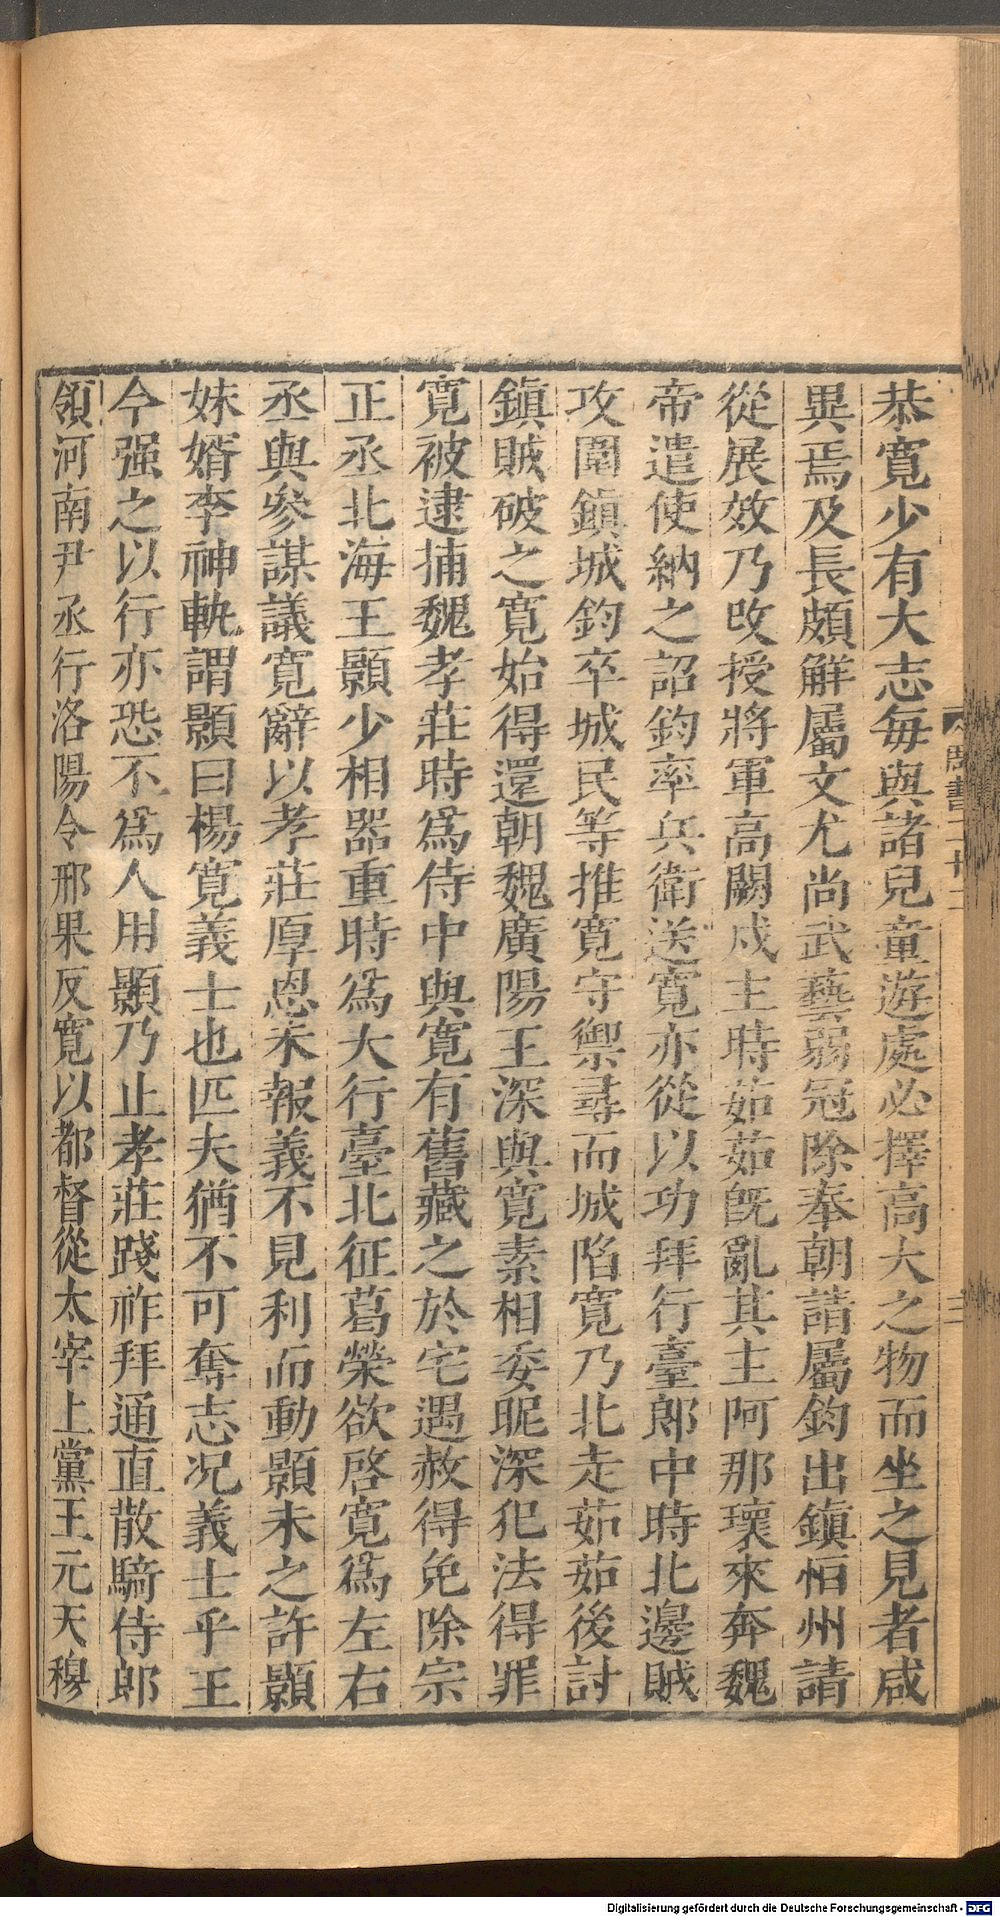 恭寬少有大志每與諸兒童遊處必擇高大之物而坐之見者咸
異焉及長頗解屬文尤尚武藝弱冠除奉朝請屬鈞出鎮恒州請
從展效乃改授將軍高闕戍主時茹茹旣亂其主阿那瓌來奔魏
帝遣使納之詔鈞率兵衛送寬亦從以功拜行臺郎中時北邊賊
攻圍鎮城鈞卒城民等推寬守禦尋而城陷寬乃北走茹茹後討
鎮賊破之寬始得還朝魏廣陽王深與寬素相委昵深犯法得罪
寬被逮捕魏孝莊時爲侍中與寬有舊藏之於宅遇赦得免除宗
正丞北海王顥少相器重時爲大行臺北征葛榮欲啓寬爲左右
丞與參謀議寬辭以孝莊厚恩未報義不見利而動顥未之許顥
妹婿李神軌謂顥曰楊寬義士也匹夫猶不可奪志况義士乎王
今强之以行亦恐不爲人用顥乃止孝莊踐祚拜通直散騎侍郎
領河南尹丞行洛陽令邢杲反寬以都督從太宰上黨王元天穆
Digitalisierung gefördert durch die Deutsche Forschungsgemeinschaft - DFG